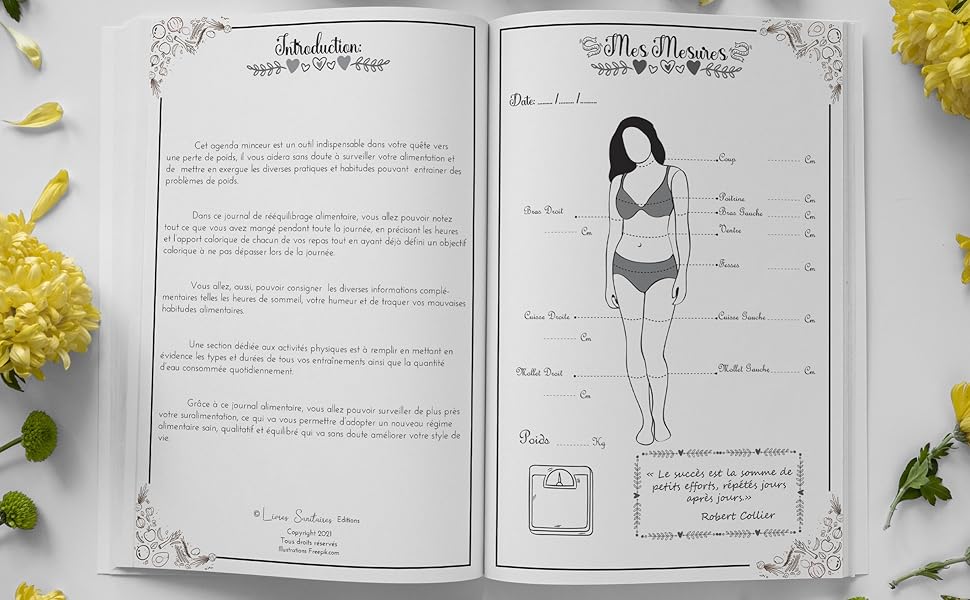 Introduction:
Cet agenda minceur est un outil indispensable dans votre quête vers
une perte de poids, il vous aidera sans doute à surveiller votre alimentation et
de mettre en exergue les diverses pratiques et habitudes pouvant entrainer des
problèmes de poids.
Dans ce journal de rééquilibrage alimentaire, vous allez pouvoir notez
tout ce que vous avez mangé pendant toute la journée, en précisant les heures
et l'apport calorique de chacun de vos repas tout en ayant déjà défini un objectif
calorique à ne pas dépasser lors de la journée.
Vous allez, aussi, pouvoir consigner les diverses informations complé-
mentaires telles les heures de sommeil, votre humeur et de traquer vos mauvaises
habitudes alimentaires.
Une section dédiée aux activités physiques est à remplir en mettant en
évidence les types et durées de tous vos entraînements ainsi que la quantité
d'eau consommée quotidiennement.
Grâce à ce journal alimentaire, vous allez pouvoir surveiller de plus près
votre suralimentation, ce qui va vous permettre d'adopter un nouveau régime
alimentaire sain, qualitatif et équilibré qui va sans doute améliorer votre style de
vie.
© Livres Sanitaires Editions
Copyright 2021
Tous droits réservés
Illustrations Freepik.com
Mes Mesures
Date: ...... /...... /......
Coup ........ Cm
Poitrine ........ Cm
Bras Droit
Bras Gauche ........ Cm
........ Cm
Ventre ........ Cm
Fesses ........ Cm
Cuisse Droite
Cuisse Gauche ........ Cm
........ Cm
Mollet Droit
Mollet Gauche ........ Cm
........ Cm
Poids ........ Kg
« Le succès est la somme de
petits efforts, répétés jours
après jours.»
Robert Collier